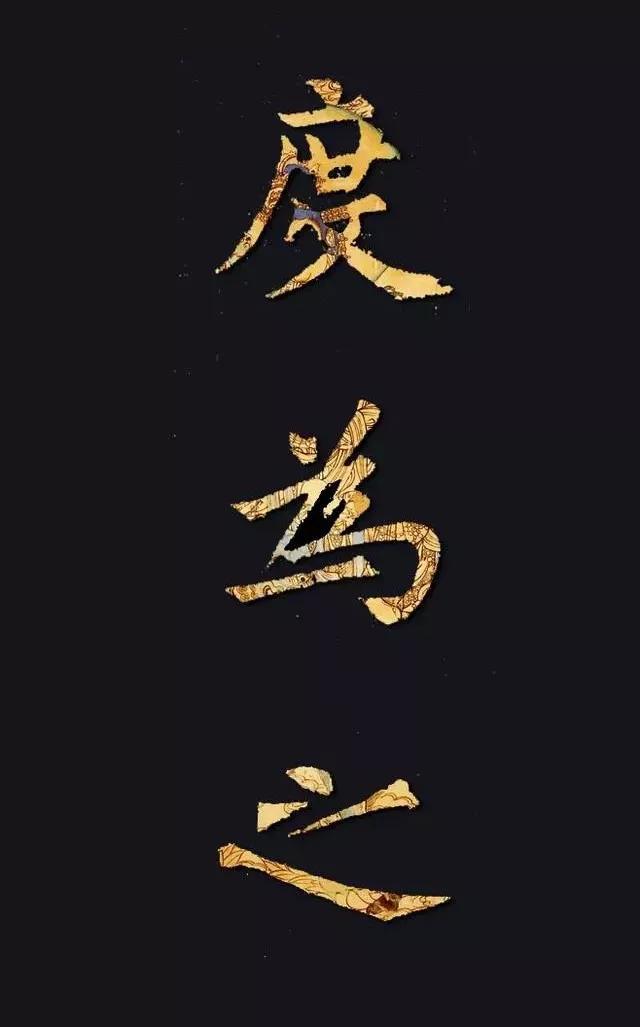 度為之